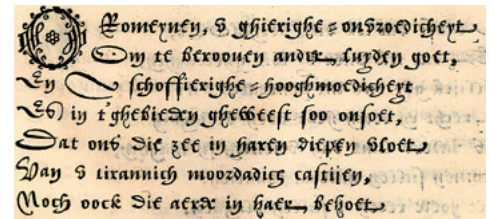 O Romeynen, v ghierighe onvroedicheyt
Om te berooven ander luyden goet,
En v schoffierighe hooghmoedicheyt
Es in t'ghebieden gheweest soo onsoet,
Dat ons die zee in haren diepen vloet
Van v tirannich moordadich castijen,
Noch oock die aerde in haer behoet